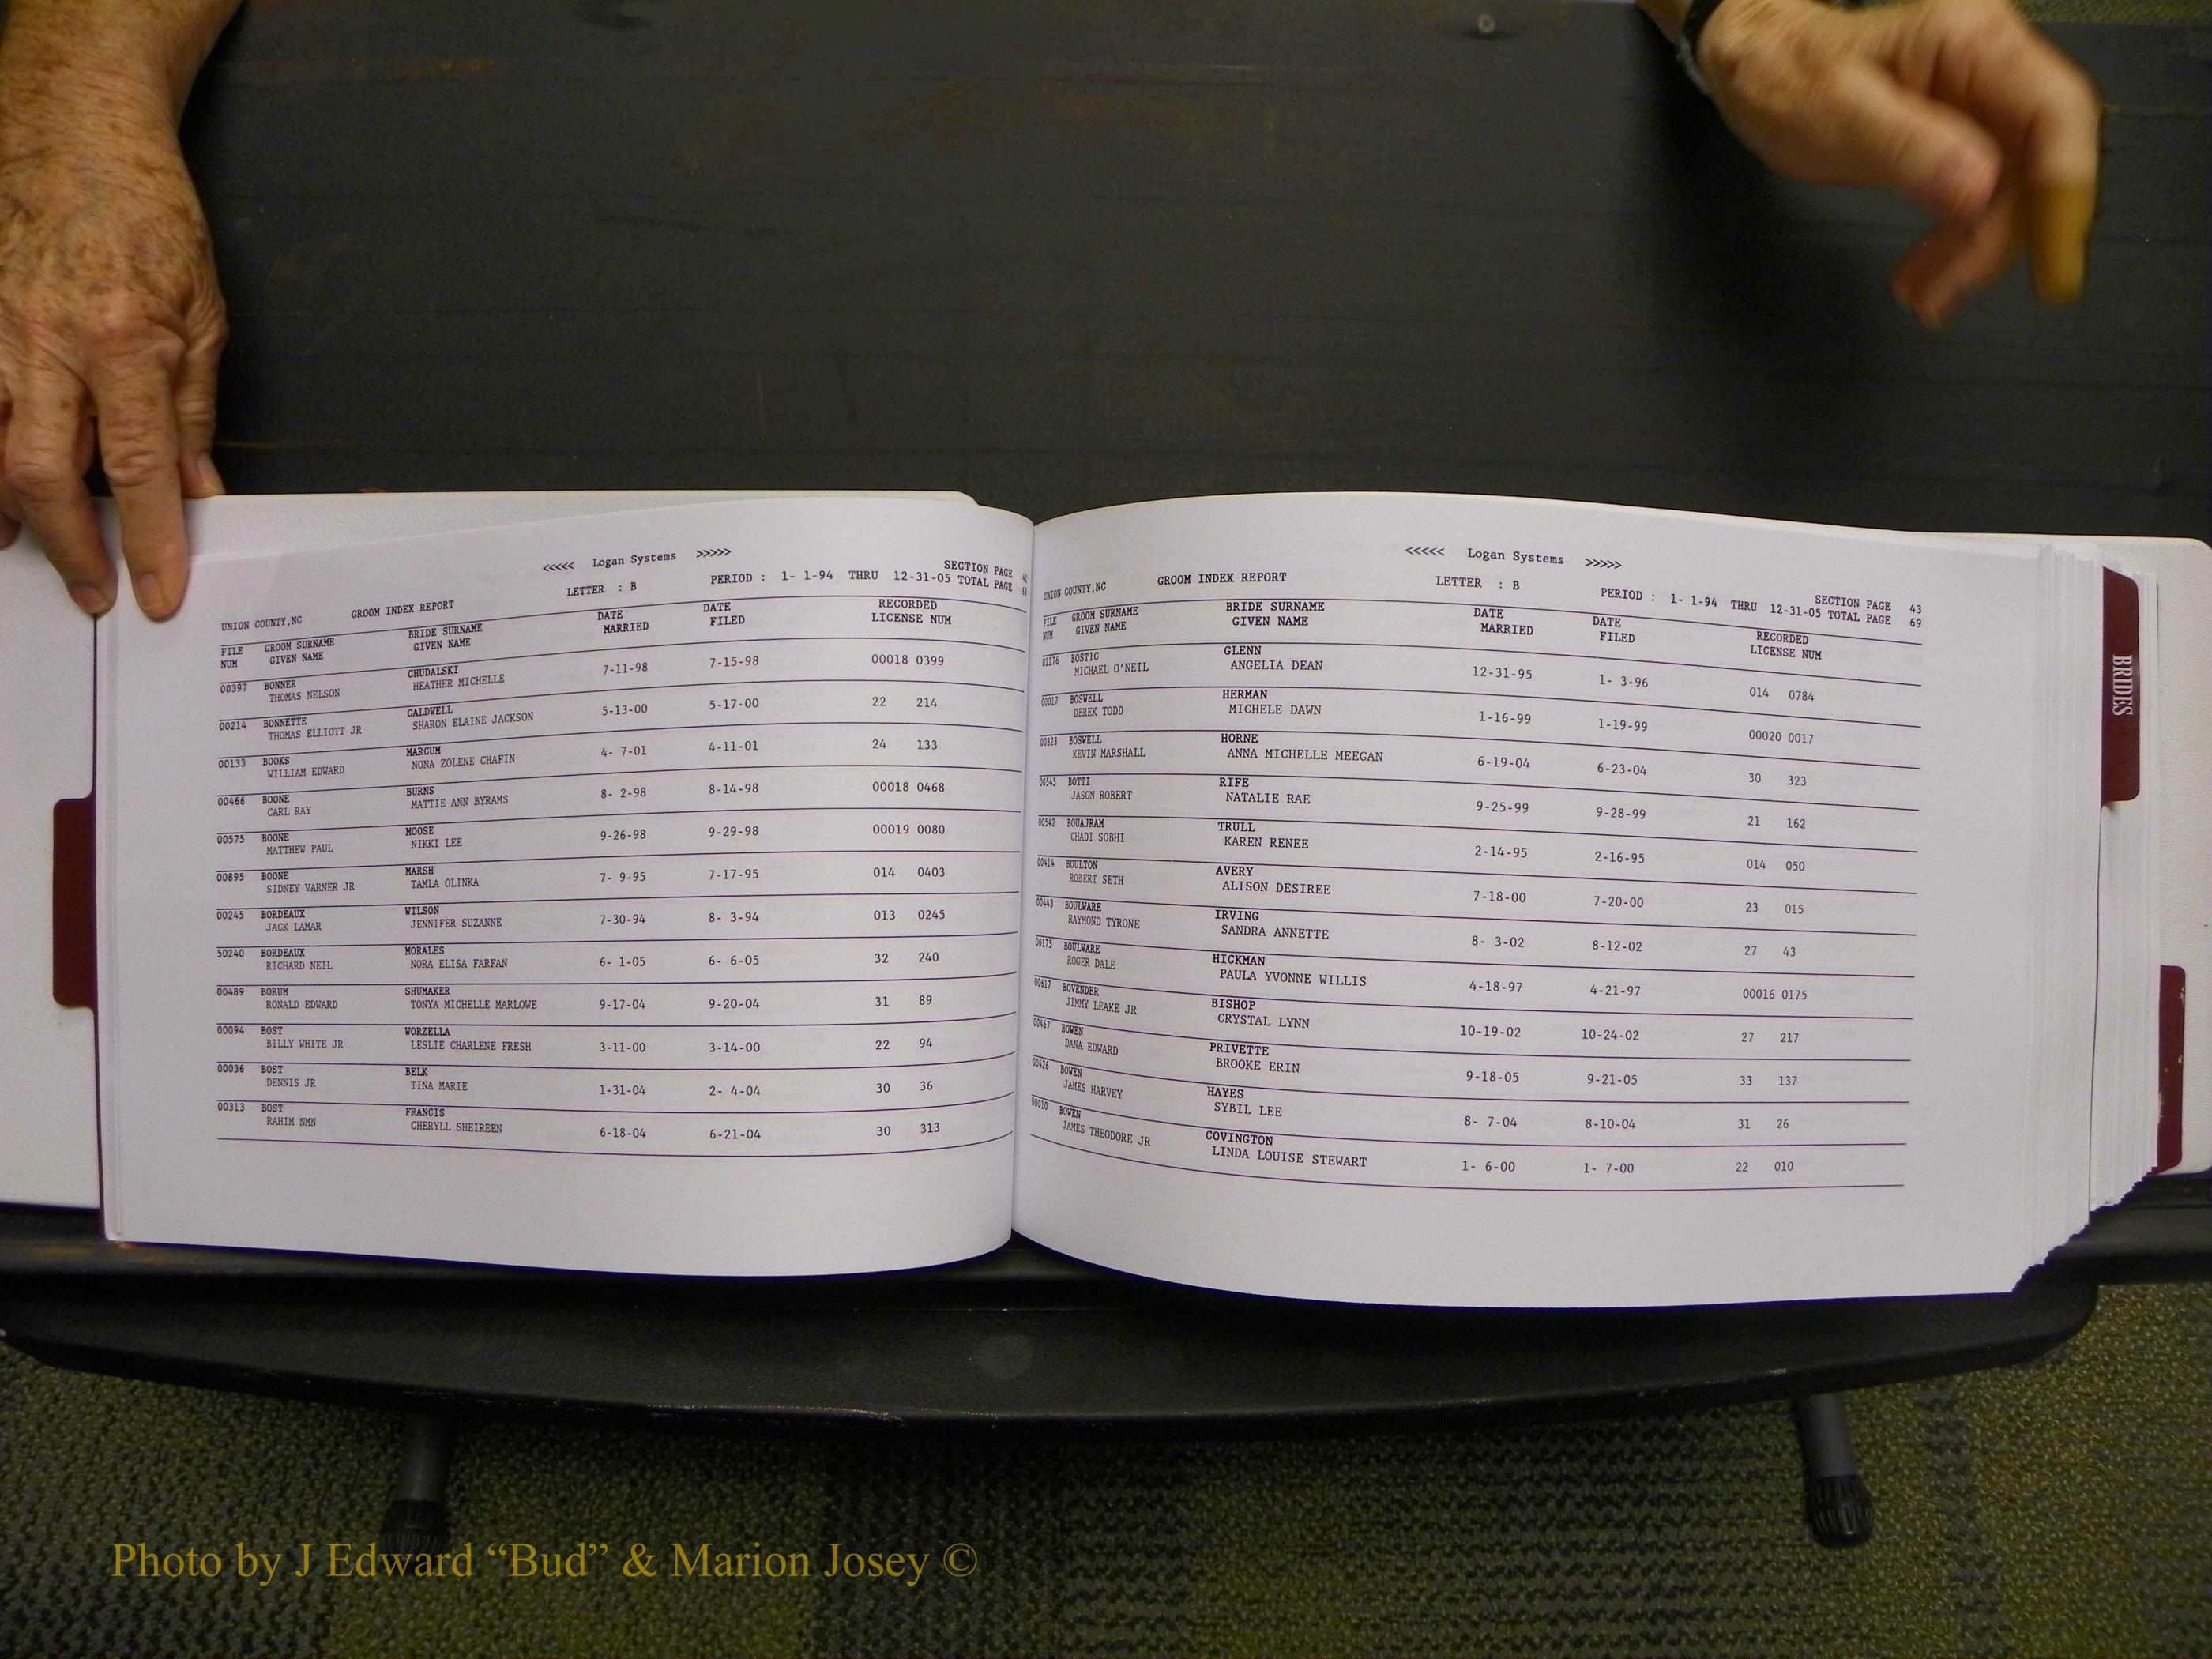 <<<<< Logan Systems >>>>>
SECTION PAGE 42
UNION COUNTY,NC GROOM INDEX REPORT LETTER : B PERIOD : 1- 1-94 THRU 12-31-05 TOTAL PAGE 68
FILE GROOM SURNAME BRIDE SURNAME DATE DATE RECORDED
NUM GIVEN NAME GIVEN NAME MARRIED FILED LICENSE NUM
00397 BONNER CHUDALSKI 7-11-98 7-15-98 00018 0399
THOMAS NELSON HEATHER MICHELLE
00214 BONNETTE CALDWELL 5-13-00 5-17-00 22 214
THOMAS ELLIOTT JR SHARON ELAINE JACKSON
00133 BOOKS MARCUM 4- 7-01 4-11-01 24 133
WILLIAM EDWARD NONA ZOLENE CHAFIN
00466 BOONE BURNS 8- 2-98 8-14-98 00018 0468
CARL RAY MATTIE ANN BYRAMS
00575 BOONE MOOSE 9-26-98 9-29-98 00019 0080
MATTHEW PAUL NIKKI LEE
00895 BOONE MARSH 7- 9-95 7-17-95 014 0403
SIDNEY VARNER JR TAMLA OLINKA
00245 BORDEAUX WILSON 7-30-94 8- 3-94 013 0245
JACK LAMAR JENNIFER SUZANNE
50240 BORDEAUX MORALES 6- 1-05 6- 6-05 32 240
RICHARD NEIL NORA ELISA FARFAN
00489 BORUM SHUMAKER 9-17-04 9-20-04 31 89
RONALD EDWARD TONYA MICHELLE MARLOWE
00094 BOST WORZELLA 3-11-00 3-14-00 22 94
BILLY WHITE JR LESLIE CHARLENE FRESH
00036 BOST BELK 1-31-04 2- 4-04 30 36
DENNIS JR TINA MARIE
00313 BOST FRANCIS 6-18-04 6-21-04 30 313
RAHIM NMN CHERYLL SHEIREEN
<<<<< Logan Systems >>>>>
SECTION PAGE 43
UNION COUNTY,NC GROOM INDEX REPORT LETTER : B PERIOD : 1- 1-94 THRU 12-31-05 TOTAL PAGE 69
FILE GROOM SURNAME BRIDE SURNAME DATE DATE RECORDED
NUM GIVEN NAME GIVEN NAME MARRIED FILED LICENSE NUM
01276 BOSTIC GLENN 12-31-95 1- 3-96 014 0784
MICHAEL O'NEIL ANGELIA DEAN
00017 BOSWELL HERMAN 1-16-99 1-19-99 00020 0017
DEREK TODD MICHELE DAWN
00323 BOSWELL HORNE 6-19-04 6-23-04 30 323
KEVIN MARSHALL ANNA MICHELLE MEEGAN
00545 BOTTI RIFE 9-25-99 9-28-99 21 162
JASON ROBERT NATALIE RAE
00542 BOUAJRAM TRULL 2-14-95 2-16-95 014 050
CHADI SOBHI KAREN RENEE
00414 BOULTON AVERY 7-18-00 7-20-00 23 015
ROBERT SETH ALISON DESIREE
00443 BOULWARE IRVING 8- 3-02 8-12-02 27 43
RAYMOND TYRONE SANDRA ANNETTE
00175 BOULWARE HICKMAN 4-18-97 4-21-97 00016 0175
ROGER DALE PAULA YVONNE WILLIS
00617 BOVENDER BISHOP 10-19-02 10-24-02 27 217
JIMMY LEAKE JR CRYSTAL LYNN
00467 BOWEN PRIVETTE 9-18-05 9-21-05 33 137
DANA EDWARD BROOKE ERIN
00426 BOWEN HAYES 8- 7-04 8-10-04 31 26
JAMES HARVEY SYBIL LEE
00010 BOWEN COVINGTON 1- 6-00 1- 7-00 22 010
JAMES THEODORE JR LINDA LOUISE STEWART
BRIDES
Photo by J Edward “Bud” & Marion Josey ©